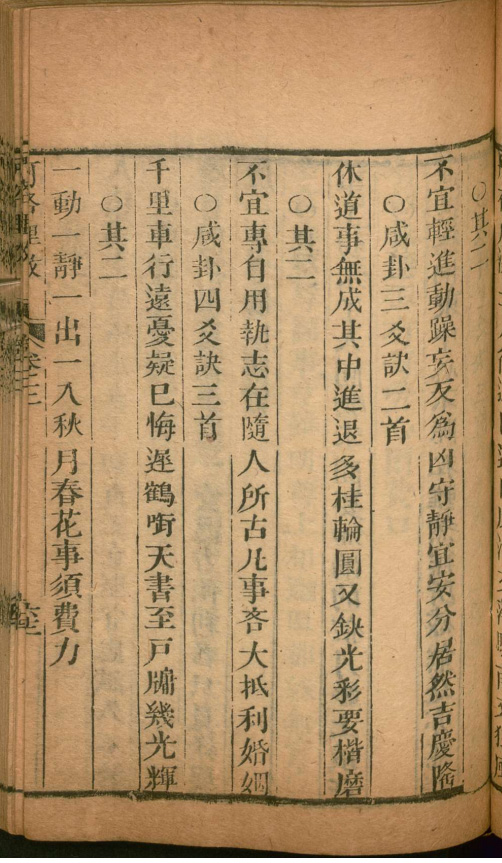 ○其二
不宜輕進動躁妄反爲凶守靜宜安分居然吉慶隆
○咸卦三爻訣二首
休道事無成其中進退多桂輪圓又缺光彩要楷磨
○其二
不宜專自用執志在隨人所古凡事吝大抵利婚姻
○咸卦四爻訣三首
千里車行遠憂疑巳悔遲鶴啣天書至戸牖幾光輝
○其二
一動一靜一出一入秋月春花事須費力
河洛理數
卷三